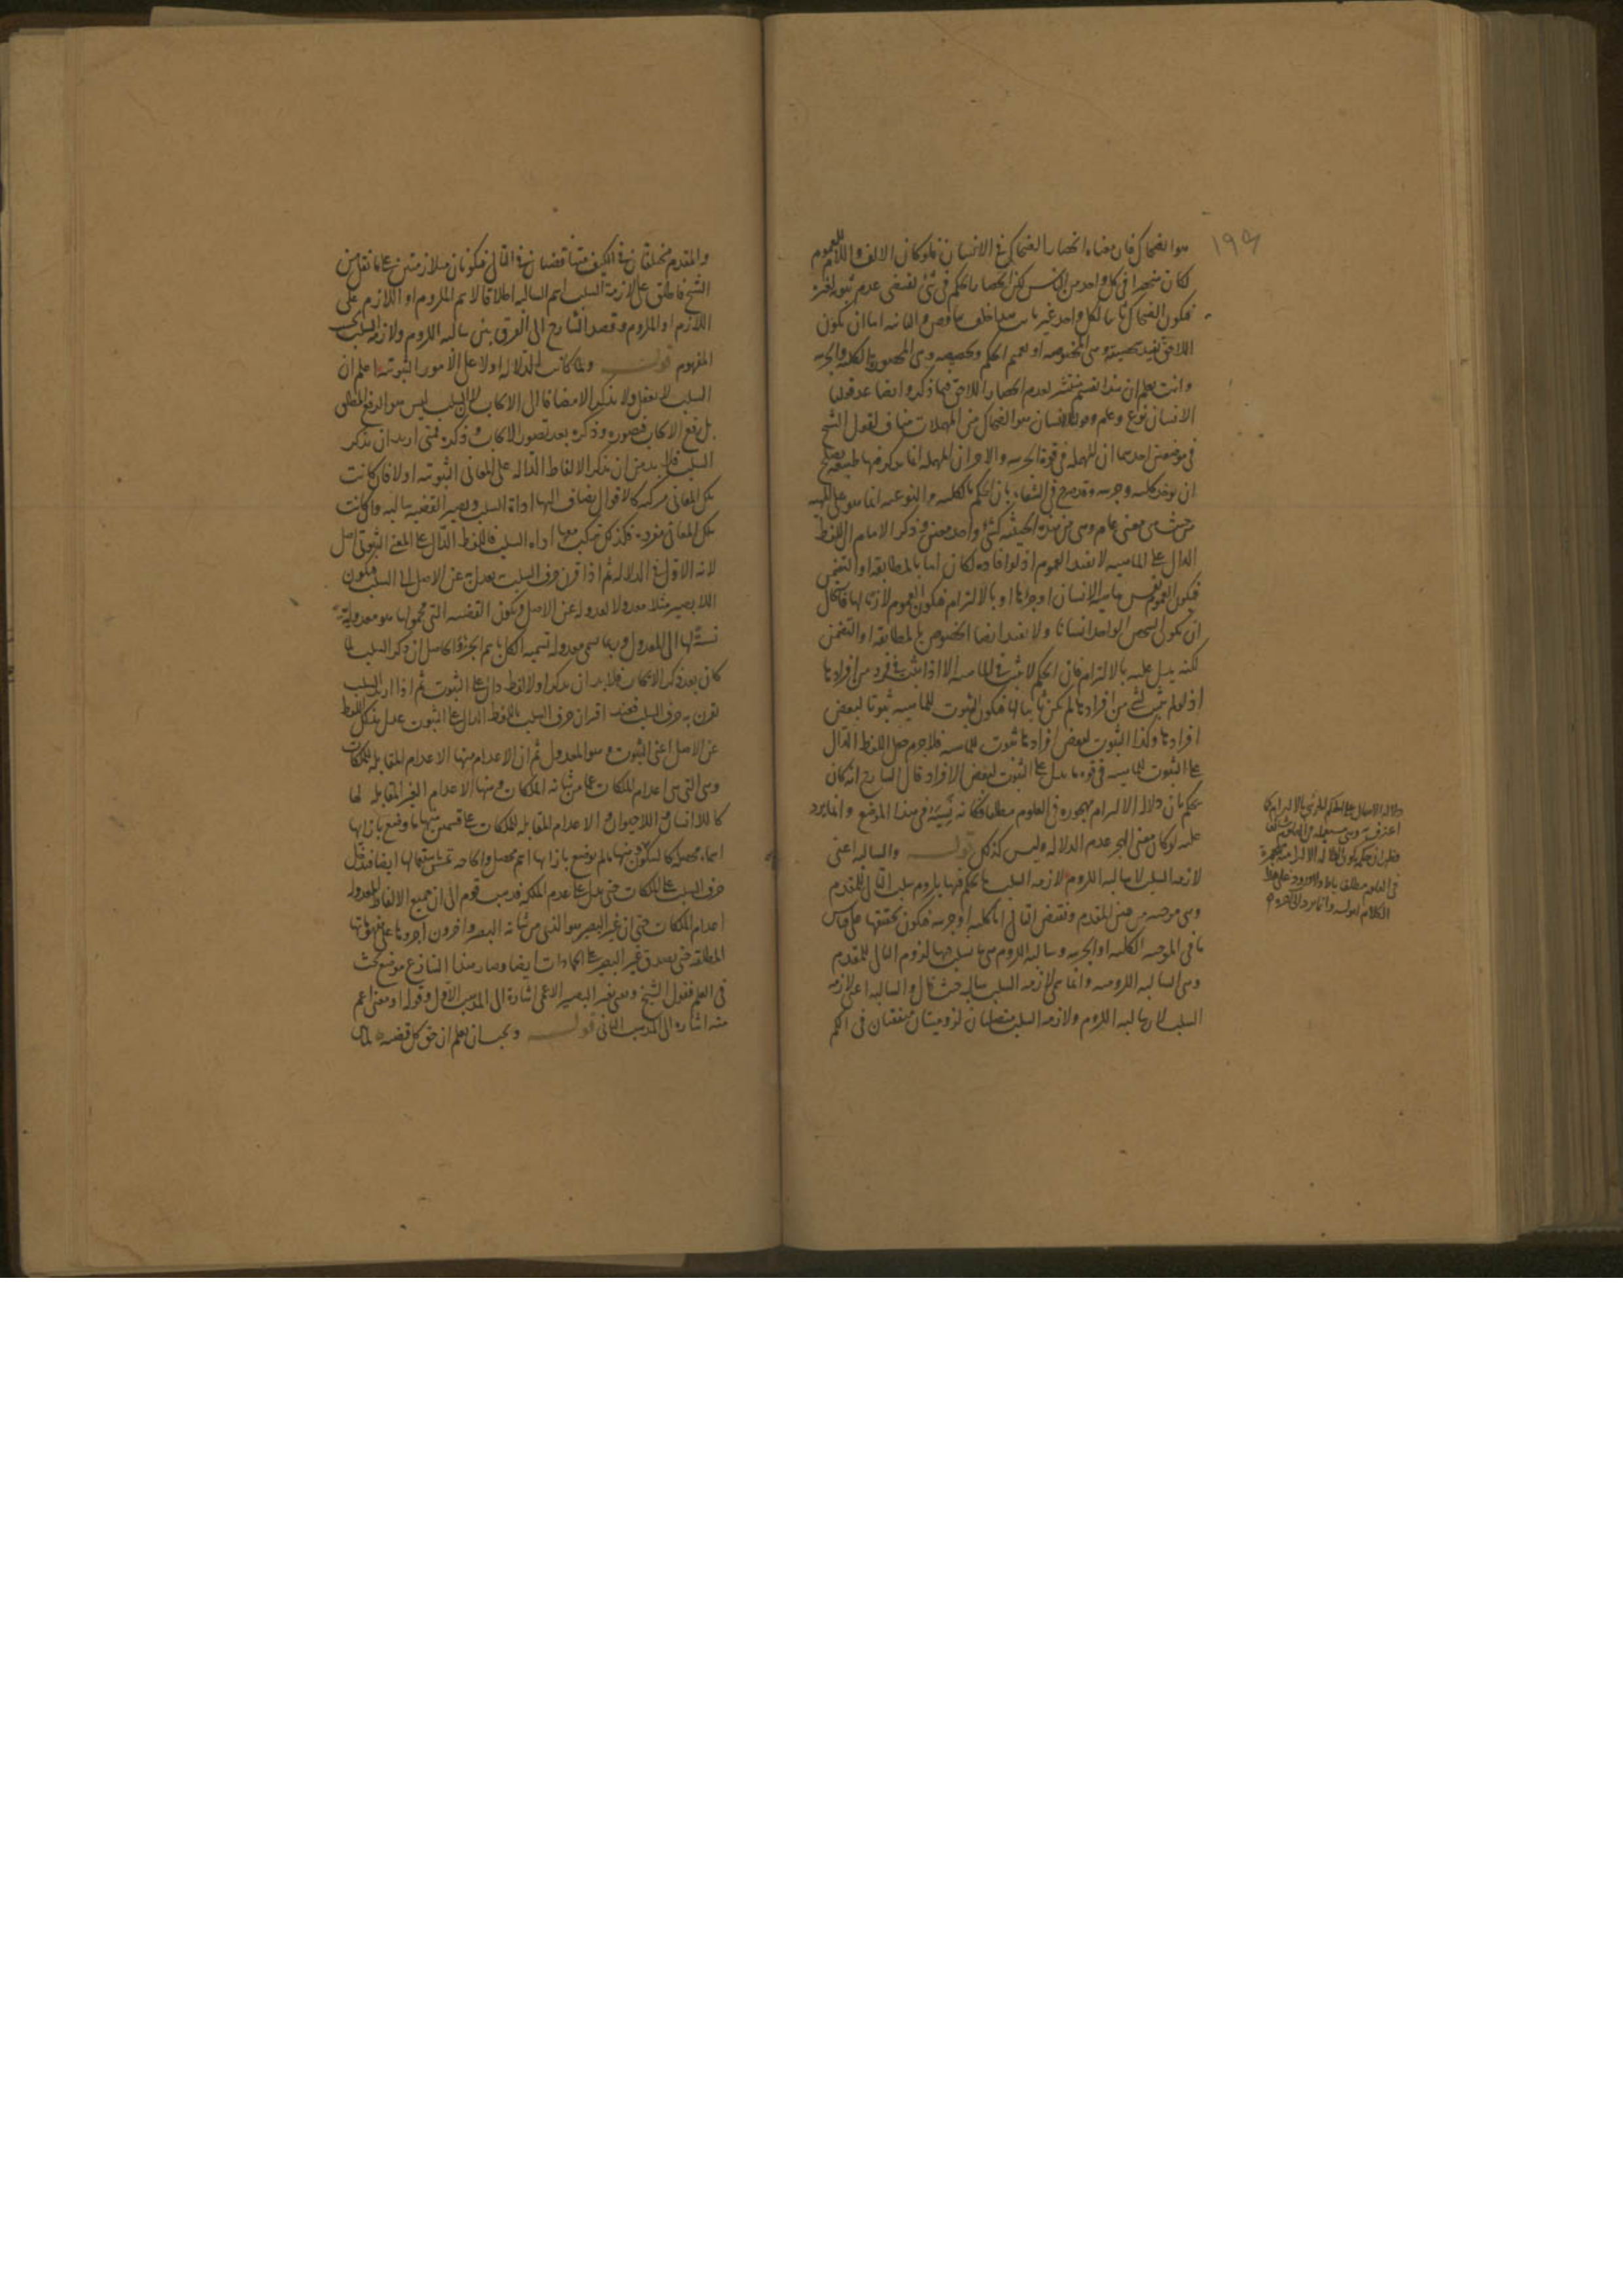 ١٩٩
هو الضحاك فان معناه انحصار الضحاك فى الانسان فلو كان الالف واللام للعموم
لكان منحصرا فى كل واحد من الناس لكن انحصار الحكم فى شئ يقتضى عدم ثبوته لغيره
فيكون الضحاك ثابتا لكل واحد غير ثابت اما ان يكون
اللاحق يفيد وهى المخصوصة او تعميم الحكم وتخصيصه وهى المحصورة الكلية والجزئية
وانت تعلم ان هذا التقسيم منتشر لعدم انحصار اللاحق فيما ذكره وايضا عد قولنا
الانسان نوع وعام وقولنا الانسان هو الضحاك من المهملات مناف لقول الشيخ
فى موضعين احدهما ان المهملة فى قوة الجزئية والاخر ان المهملة انما يذكر فيها طبيعة يصلح
ان يوخذ كلية وجزئية وقد صرح فى الشفاء بان الحكم بالكلية والنوعية انما هو على الماهية
من حيث هى معنى عام وهى من هذه الحيثية كشئ واحد معين وذكر الامام ان اللفظ
الدال على الماهية لا يفيد العموم اذ لو افاده لكان اما بالمطابقة او التضمن
فيكون العموم نفس ماهية الانسان او جزءها او بالالتزام فيكون العموم لازما لها فاستحال
ان يكون الشخص الواحد انسانا ولا يفيد ايضا الخصوص بالمطابقة او التضمن
لكنه يدل عليه بالالتزام فان الحكم لا يثبت فى الماهية الا اذا ثبت فى فرد من افرادها
اذ لو لم يثبت لشئ من افرادها لم يكن ثابتا لها فيكون الثبوت للماهية ثبوتا لبعض
افرادها وكذا الثبوت لبعض افرادها ثبوت للماهية فلا جرم جعل اللفظ الدال
على الثبوت للماهية فى قوة ما يدل على الثبوت لبعض الافراد قال الشارح انه كان
يحكم بان دلالة الالتزام مهجورة فى العلوم مطلقا فكانه نسيه فى هذا الموضع وانما يرد
عليه لو كان معنى الهجر عدم الدلالة وليس كذلك قوله والسالبة اعنى
لازمة السلب لا سالبة اللزوم لازمة السلب ما يحكم فيها بلزوم سلب التالى للمقدم
وهى موجبة من عين المقدم ونقيض التالى اما كلية او جزئية فيكون تحققها على قياس
ما فى الموجبة الكلية او الجزئية وسالبة اللزوم هى ما يسلب فيها لزوم التالى للمقدم
وهى السالبة اللزومية وانما سمى لازمة السلب سالبة حيث قال والسالبة اعنى لازمة
السلب لان سالبة اللزوم ولازمة السلب متصلتان لزوميتان متفقتان فى الكم
دلالة الاهمال على الحكم الجزئى بالالتزام كما
اعترف به وهى مستعملة فى
فظهر ان حكمه بكون الدلالة الالتزامية مهجورة
فى العلوم مطلقا باطل والورود على هذا
الكلام
والمقدم مختلفتان فى الكيف متناقضتان فى التالى فيكونان متلازمتين على ما نقل عن
الشيخ فاطلق على لازمة السلب اسم السالبة اطلاقا لاسم الملزوم او اللازم على
اللازم او الملزوم وقصد الشارح الى الفرق بين سالبة اللزوم ولازمة السلب بحسب
المفهوم قوله ولما كانت الدلالة اولا على الامور الثبوتية اعلم ان
السلب لا يعقل ولا يذكر الا مضافا الى الايجاب لان السلب ليس هو الرفع المطلق
بل رفع الايجاب فتصوره وذكره بعد تصور الايجاب وذكره فمتى اريد ان يذكر
السلب فلا بد من ان يذكر الالفاظ الدالة على المعانى الثبوتية اولا فان كانت
تلك المعانى مركبة كالاقوال يضاف اليها اداة السلب ويصير القضية سالبة وان كانت
تلك المعانى مفردة فكذلك تركب معها اداة السلب فاللفظ الدال على المعنى الثبوتى اصل
لانه الاول فى الدلالة ثم اذا قرن حرف السلب يعدل به عن الاصل الى السلب فيكون
اللابصير مثلا معدولا لعدوله عن الاصل ويكون القضية التى محمولها هو معدولية
نسبة لها الى المعدول وربما سمى معدولة تسمية الكل باسم الجزء والحاصل ان ذكر السلب لما
كان بعد ذكر الايجاب فلا بد ان يذكر اولا لفظ دال على الثبوت ثم اذا اريد السلب
يقرن به حرف السلب فعند اقتران حرف السلب باللفظ الدال على الثبوت عدل بذلك اللفظ
عن الاصل اعنى الثبوت وهو المعدول ثم ان الاعدام منها الاعدام المقابلة للملكات
وهى التى هى اعدام الملكات عما من شانه الملكات ومنها الاعدام الغير المقابلة لها
كاللاانسان واللاحيوان والاعدام المقابلة للملكات على قسمين منها ما وضع بازائها
اسماء محصلة كالسكون ومنها ما لم يوضع بازائها اسم محصل والحاجة تمس استعمالها ايضا فنقل
حرف السلب على الملكات حتى يدل على عدم الملكة فذهب قوم الى ان جميع الالفاظ المعدولة
اعدام الملكات حتى ان غير البصير هو الذى من شانه البصر واخرون اجروها على مفهوماتها
المطلقة حتى يصدق غير البصير على الجمادات ايضا وصار هذا التنازع موضع بحث
فى العلم فقول الشيخ ومعنى غير البصير الاعمى اشارة الى المذهب الاول وقوله او معنى اعم
منه اشارة الى المذهب الثانى قوله ويجب ان يعلم ان حق كل قضية